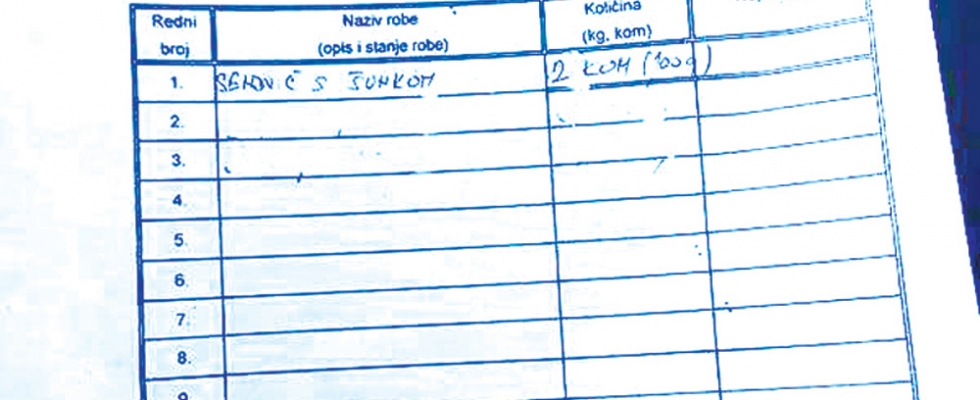 Redni broj
Naziv robe
(opis i stanje robe)
Količina
(kg, kom)
1. SENDVIČ S ŠUNKOM 2 KOM (100g)
2.
3.
4.
5.
6.
7.
8.
9.